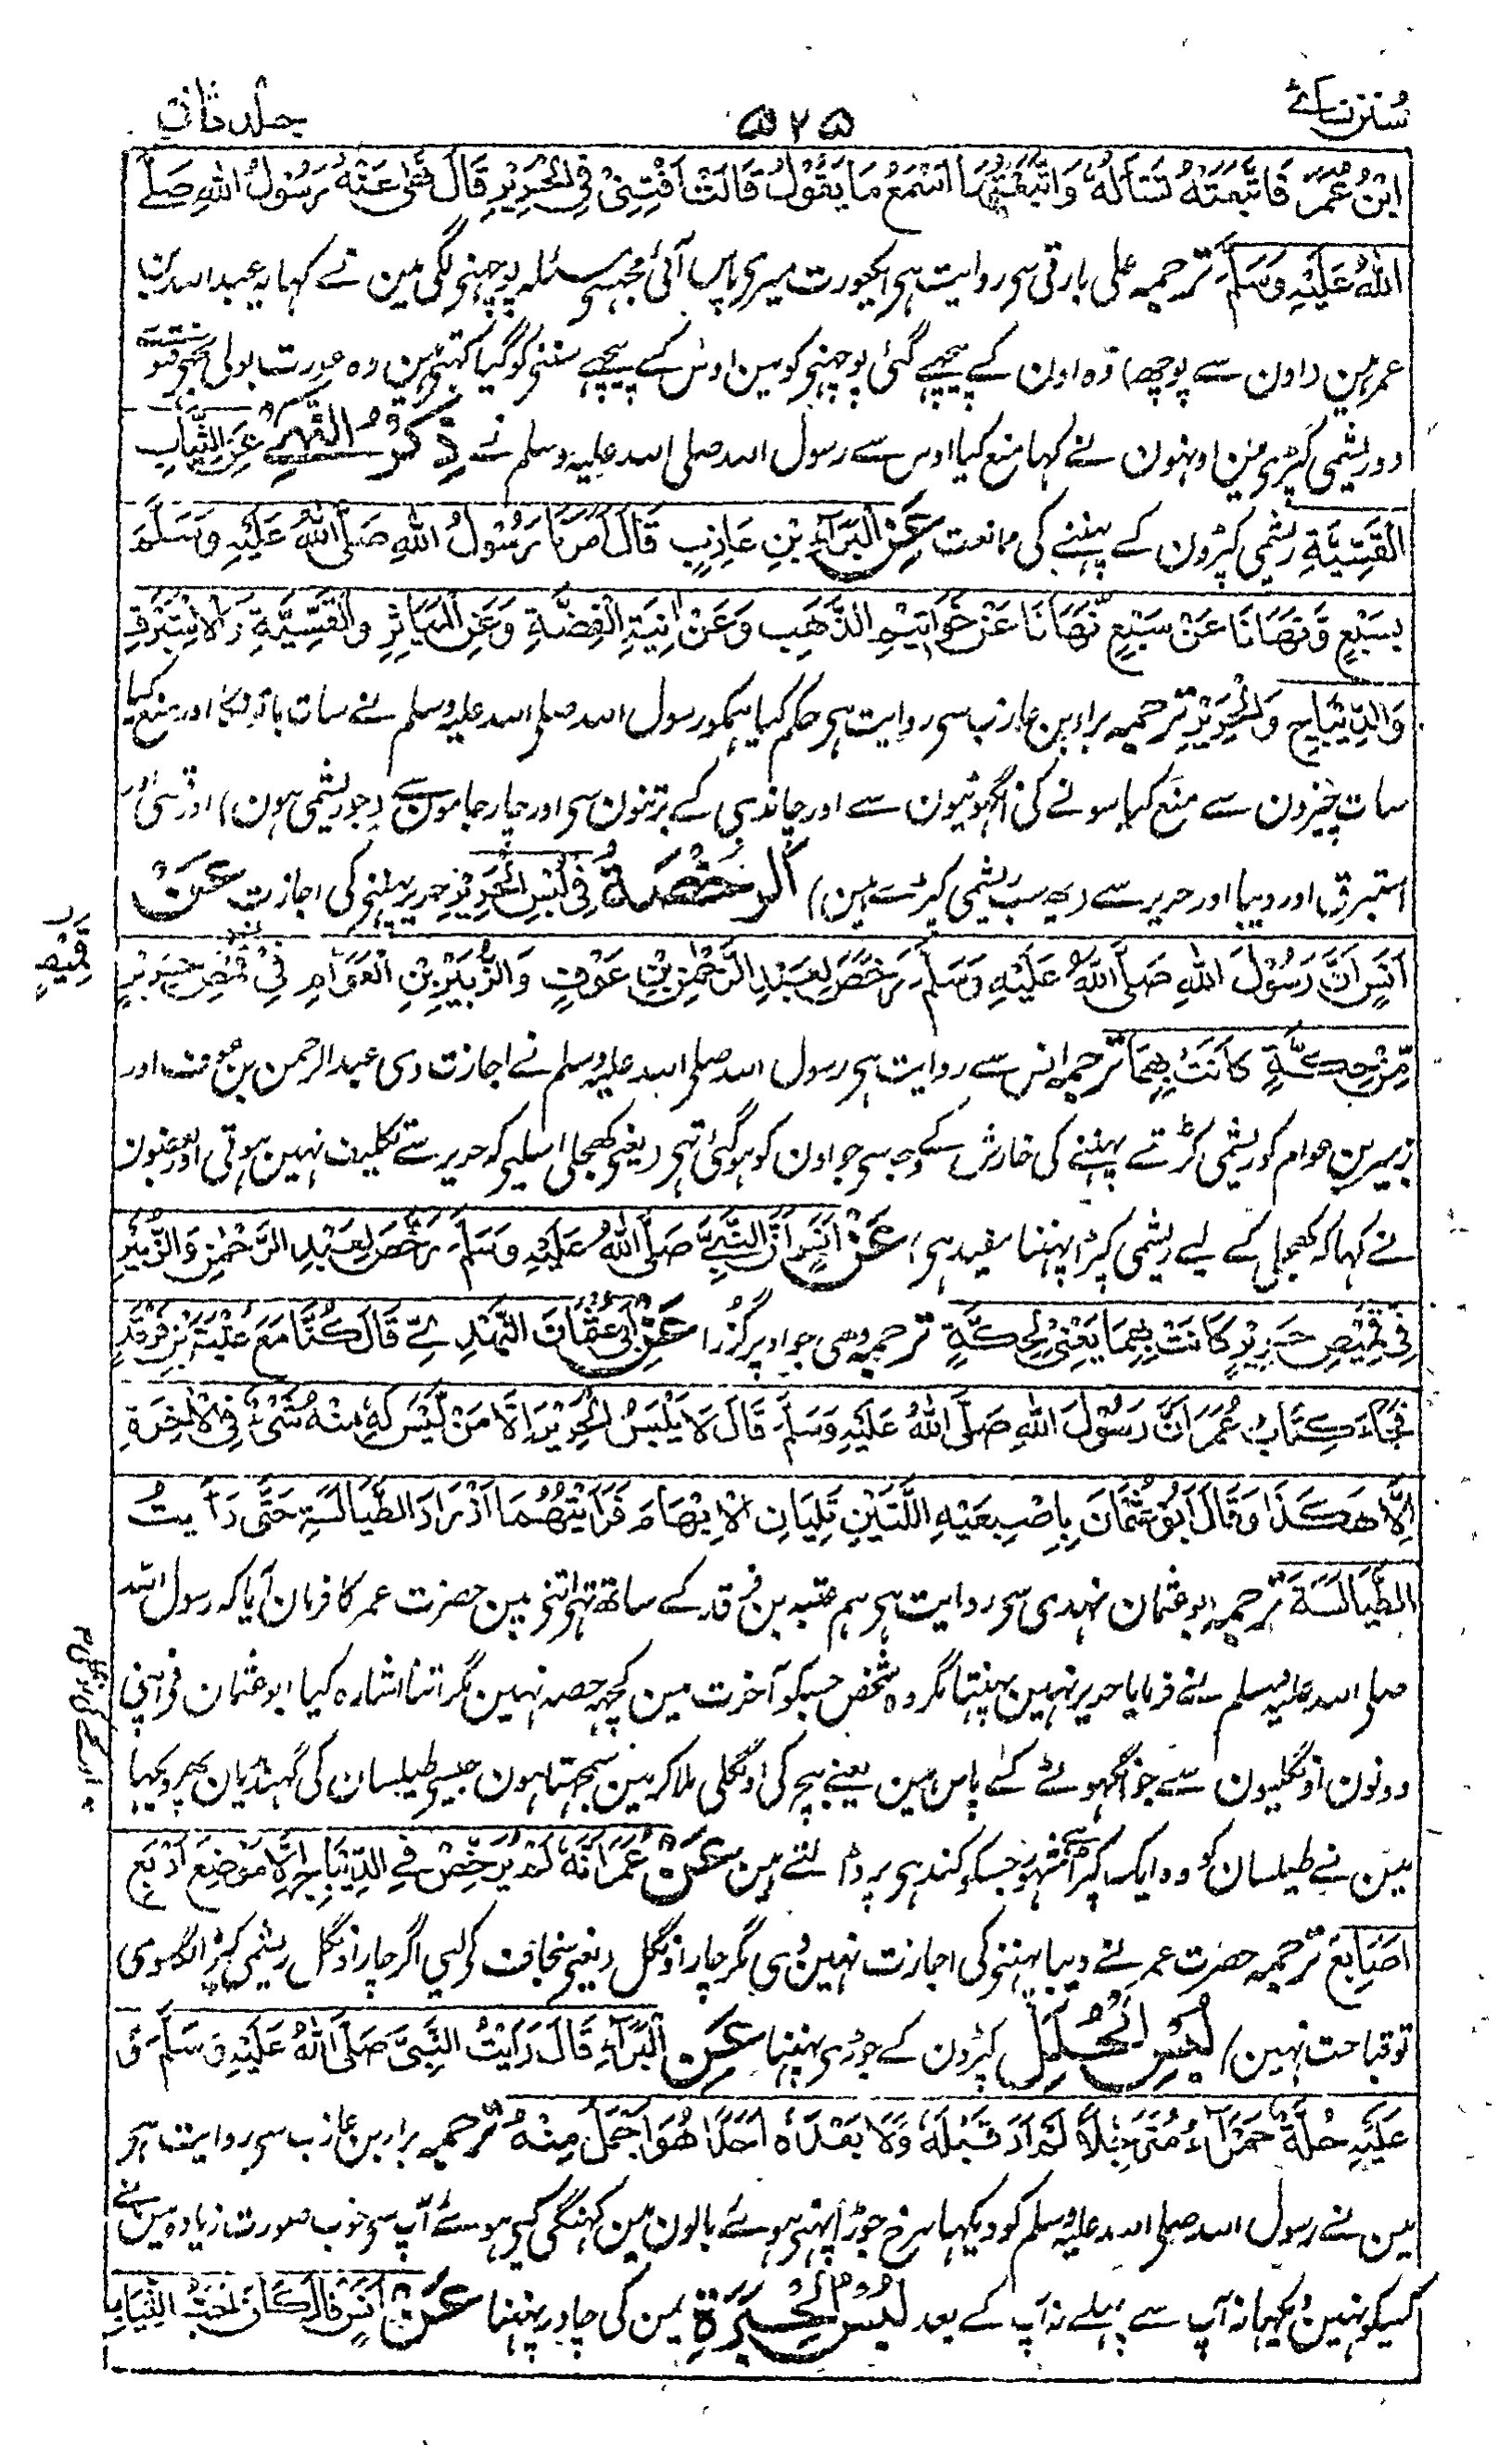 سُنن نسائے ۵۲۵ جلد ثانی
ابْنُ عُمَرَ فَاتَّبَعَتْهُ تَسْأَلُهُ وَاتَّبَعْتُهَا اَسْمَعُ مَا يَقُوْلُ قَالَتْ اَفْتِنِيْ فِي الْحَرِيْرِ قَالَ نَهٰى عَنْهُ رَسُوْلُ اللهِ صَلَّے
اللهُ عَلَيْهِ وَسَلَّمَ ترجمہ علی بارقی سی روایت ہی ایکعورت میری پاس آئی مجہسی مسئلہ پوچہنی لگی مین نے کہا یہ عبداللہ بن
عمر ہین اون سے پوچھ وہ اون کے پیچہے گئی پوچہنی کو مین اوس کے پیچہے سننی کو گیا کہتی ہین وہ عورت بولی مجہی فتویٰ
دو ریشمی کپڑی مین اونہون نے کہا منع کیا اوس سے رسول اللہ صلی اللہ علیہ وسلم نے ذِكْرُ النَّهْيِ عَنِ الثِّيَابِ
الْقَسِّيَّةِ ریشمی کپڑون کے پہننے کی ممانعت عَنِ الْبَرَآءِ بْنِ عَازِبٍ قَالَ اَمَرَنَا رَسُوْلُ اللهِ صَلَّى اللهُ عَلَيْهِ وَسَلَّمَ
بِسَبْعٍ وَّنَهَانَا عَنْ سَبْعٍ نَّهَانَا عَنْ خَوَاتِيْمِ الذَّهَبِ وَعَنْ اٰنِيَةِ الْفِضَّةِ وَعَنِ الْمَيَاثِرِ وَالْقَسِّيَّةِ وَالْاِسْتَبْرَقِ
وَالدِّيْبَاجِ وَالْحَرِيْرِ ترجمہ براء بن عازب سی روایت ہی حکم کیا ہمکو رسول اللہ صلی اللہ علیہ وسلم نے سات باتونکا اور منع کیا
سات چیزون سے منع کیا سونے کی انگہوٹیون سے اور چاندی کے برتنون سی اور چارجامون سے (جو ریشمی ہون) اور قسی اور
استبرق اور دیبا اور حریر سے (یہ سب ریشمی کپڑے ہین) اَلرُّخْصَةُ فِي لُبْسِ الْحَرِيْرِ حریر پہننی کی اجازت عَنْ
اَنَسٍ اَنَّ رَسُوْلَ اللهِ صَلَّى اللهُ عَلَيْهِ وَسَلَّمَ رَخَّصَ لِعَبْدِ الرَّحْمٰنِ بْنِ عَوْفٍ وَالزُّبَيْرِ بْنِ الْعَوَّامِ فِيْ قُمُصِ حَرِيْرٍ
مِّنْ حِكَّةٍ كَانَتْ بِهِمَا ترجمہ انس سے روایت ہی رسول اللہ صلی اللہ علیہ وسلم نے اجازت دی عبدالرحمن بن عوف اور
زبیر بن عوام کو ریشمی کرُتے پہننے کی خارش کے وجہ سی جو اون کو ہو گئی تہی (یعنی کھجلی اسلیی کہ حریر سے تکلیف نہین ہوتی اور بعضون
نے کہا کہ کھجلی کے لیے ریشمی کپڑا پہننا مفید ہی) عَنْ اَنَسٍ اَنَّ النَّبِيَّ صَلَّى اللهُ عَلَيْهِ وَسَلَّمَ رَخَّصَ لِعَبْدِ الرَّحْمٰنِ وَالزُّبَيْرِ
فِيْ قَمِيْصِ حَرِيْرٍ كَانَتْ بِهِمَا يَعْنِيْ لِحِكَّةٍ ترجمہ وہی جو اوپر گزُرا عَنْ اَبِيْ عُثْمَانَ النَّهْدِيِّ قَالَ كُنَّا مَعَ عُتْبَةَ بْنِ فَرْقَدٍ
فَجَاءَ كِتَابُ عُمَرَ اَنَّ رَسُوْلَ اللهِ صَلَّى اللهُ عَلَيْهِ وَسَلَّمَ قَالَ لَا يَلْبَسُ الْحَرِيْرَ اِلَّا مَنْ لَّيْسَ لَهٗ مِنْهُ شَيْءٌ فِي الْاٰخِرَةِ
اِلَّا هٰكَذَا وَقَالَ اَبُوْ عُثْمَانَ بِاِصْبِعَيْهِ اللَّتَيْنِ تَلِيَانِ الْاِبْهَامَ فَرَاَيْتُهُمَا اَزْرَارَ الطَّيَالَسَةِ حَتّٰى رَاَيْتُ
الطَّيَالَسَةَ ترجمہ ابو عثمان نہدی سی روایت ہی ہم عتبہ بن فرقد کے ساتھ تہی اتنی مین حضرت عمر کا فرمان آیا کہ رسول اللہ
صلی اللہ علیہ وسلم نے فرمایا حریر نہین پہنتا مگر وہ شخص جسکو آخرت مین کچہہ حصہ نہین مگر اتنا اشارہ کیا ابو عثمان فی اپنی
دونون اونگلیون سے جو انگہوٹے کے پاس ہین یعنے بیچ کی اونگلی ملا کر مین سمجہتا ہون جیسی طیلسان کی گہنڈیان پھر دیکہا
مین نے طیلسان کو وہ ایک کپڑا مشہور جسکو کندہی پر ڈالتے ہین عَنْ عُمَرَ اَنَّهٗ لَمْ يُرَخِّصْ فِي الدِّيْبَاجِ اِلَّا مَوْضِعَ اَرْبَعِ
اَصَابِعَ ترجمہ حضرت عمر نے دیبا پہننی کی اجازت نہین دی مگر چار اونگل (یعنی سنجاف کو لیی اگر چار اونگل ریشمی کپڑا لگاوی
تو قباحت نہین) لُبْسُ الْحُلَلِ کپڑون کے جوڑی پہننا عَنِ الْبَرَآءِ قَالَ رَاَيْتُ النَّبِيَّ صَلَّى اللهُ عَلَيْهِ وَسَلَّمَ وَ
عَلَيْهِ حُلَّةٌ حَمْرَآءُ مُتَرَجِّلًا لَّمْ اَرَ قَبْلَهٗ وَلَا بَعْدَهٗ اَحَدًا هُوَ اَجْمَلُ مِنْهُ ترجمہ براء بن عازب سی روایت ہی
مین نے رسول اللہ صلی اللہ علیہ وسلم کو دیکہا سرخ جوڑا پہنی ہوئے بالون مین کنگہی کیی ہوئے آپ سی خوب صورت زیادہ مین نے
کسیکو نہین دیکہا نہ آپ سے پہلے نہ آپ کے بعد لُبْسُ الْحِبَرَةِ یمن کی چادر پہننا عَنْ اَنَسٍ قَالَ كَانَ اَحَبُّ الثِّيَابِ
قَمِيْصِ